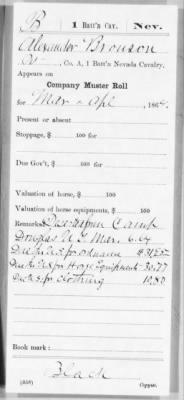 B | 1 Batt'n Cav. | Nev.
Alexander Bronson
Co. A, 1 Batt'n Nevada Cavalry.
Appears on
Company Muster Roll
for Mar & Apl, 186
Present or absent
Stoppage, $ 100 for
Due Gov't, $ 100 for
Valuation of horse, $ 100
Valuation of horse equipments, $ 100
Remarks: Deserted from Camp
Douglas U.T. Mar. 6. 64
Due U.S. for ordnance $
Due U.S. for Horse Equipments 30.77
Due U.S. for Clothing
Book mark:
Black
(358) Copyist.